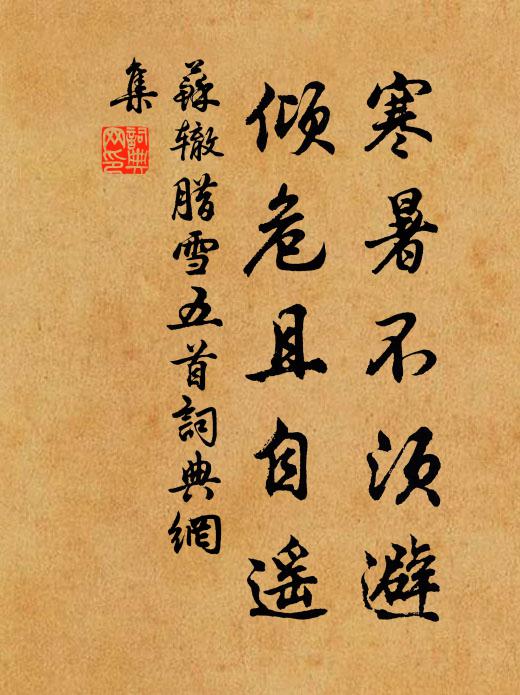 寒暑不须避
倾危且自遥
蘇辙腊雪五首詞典網
集
詞典
网印